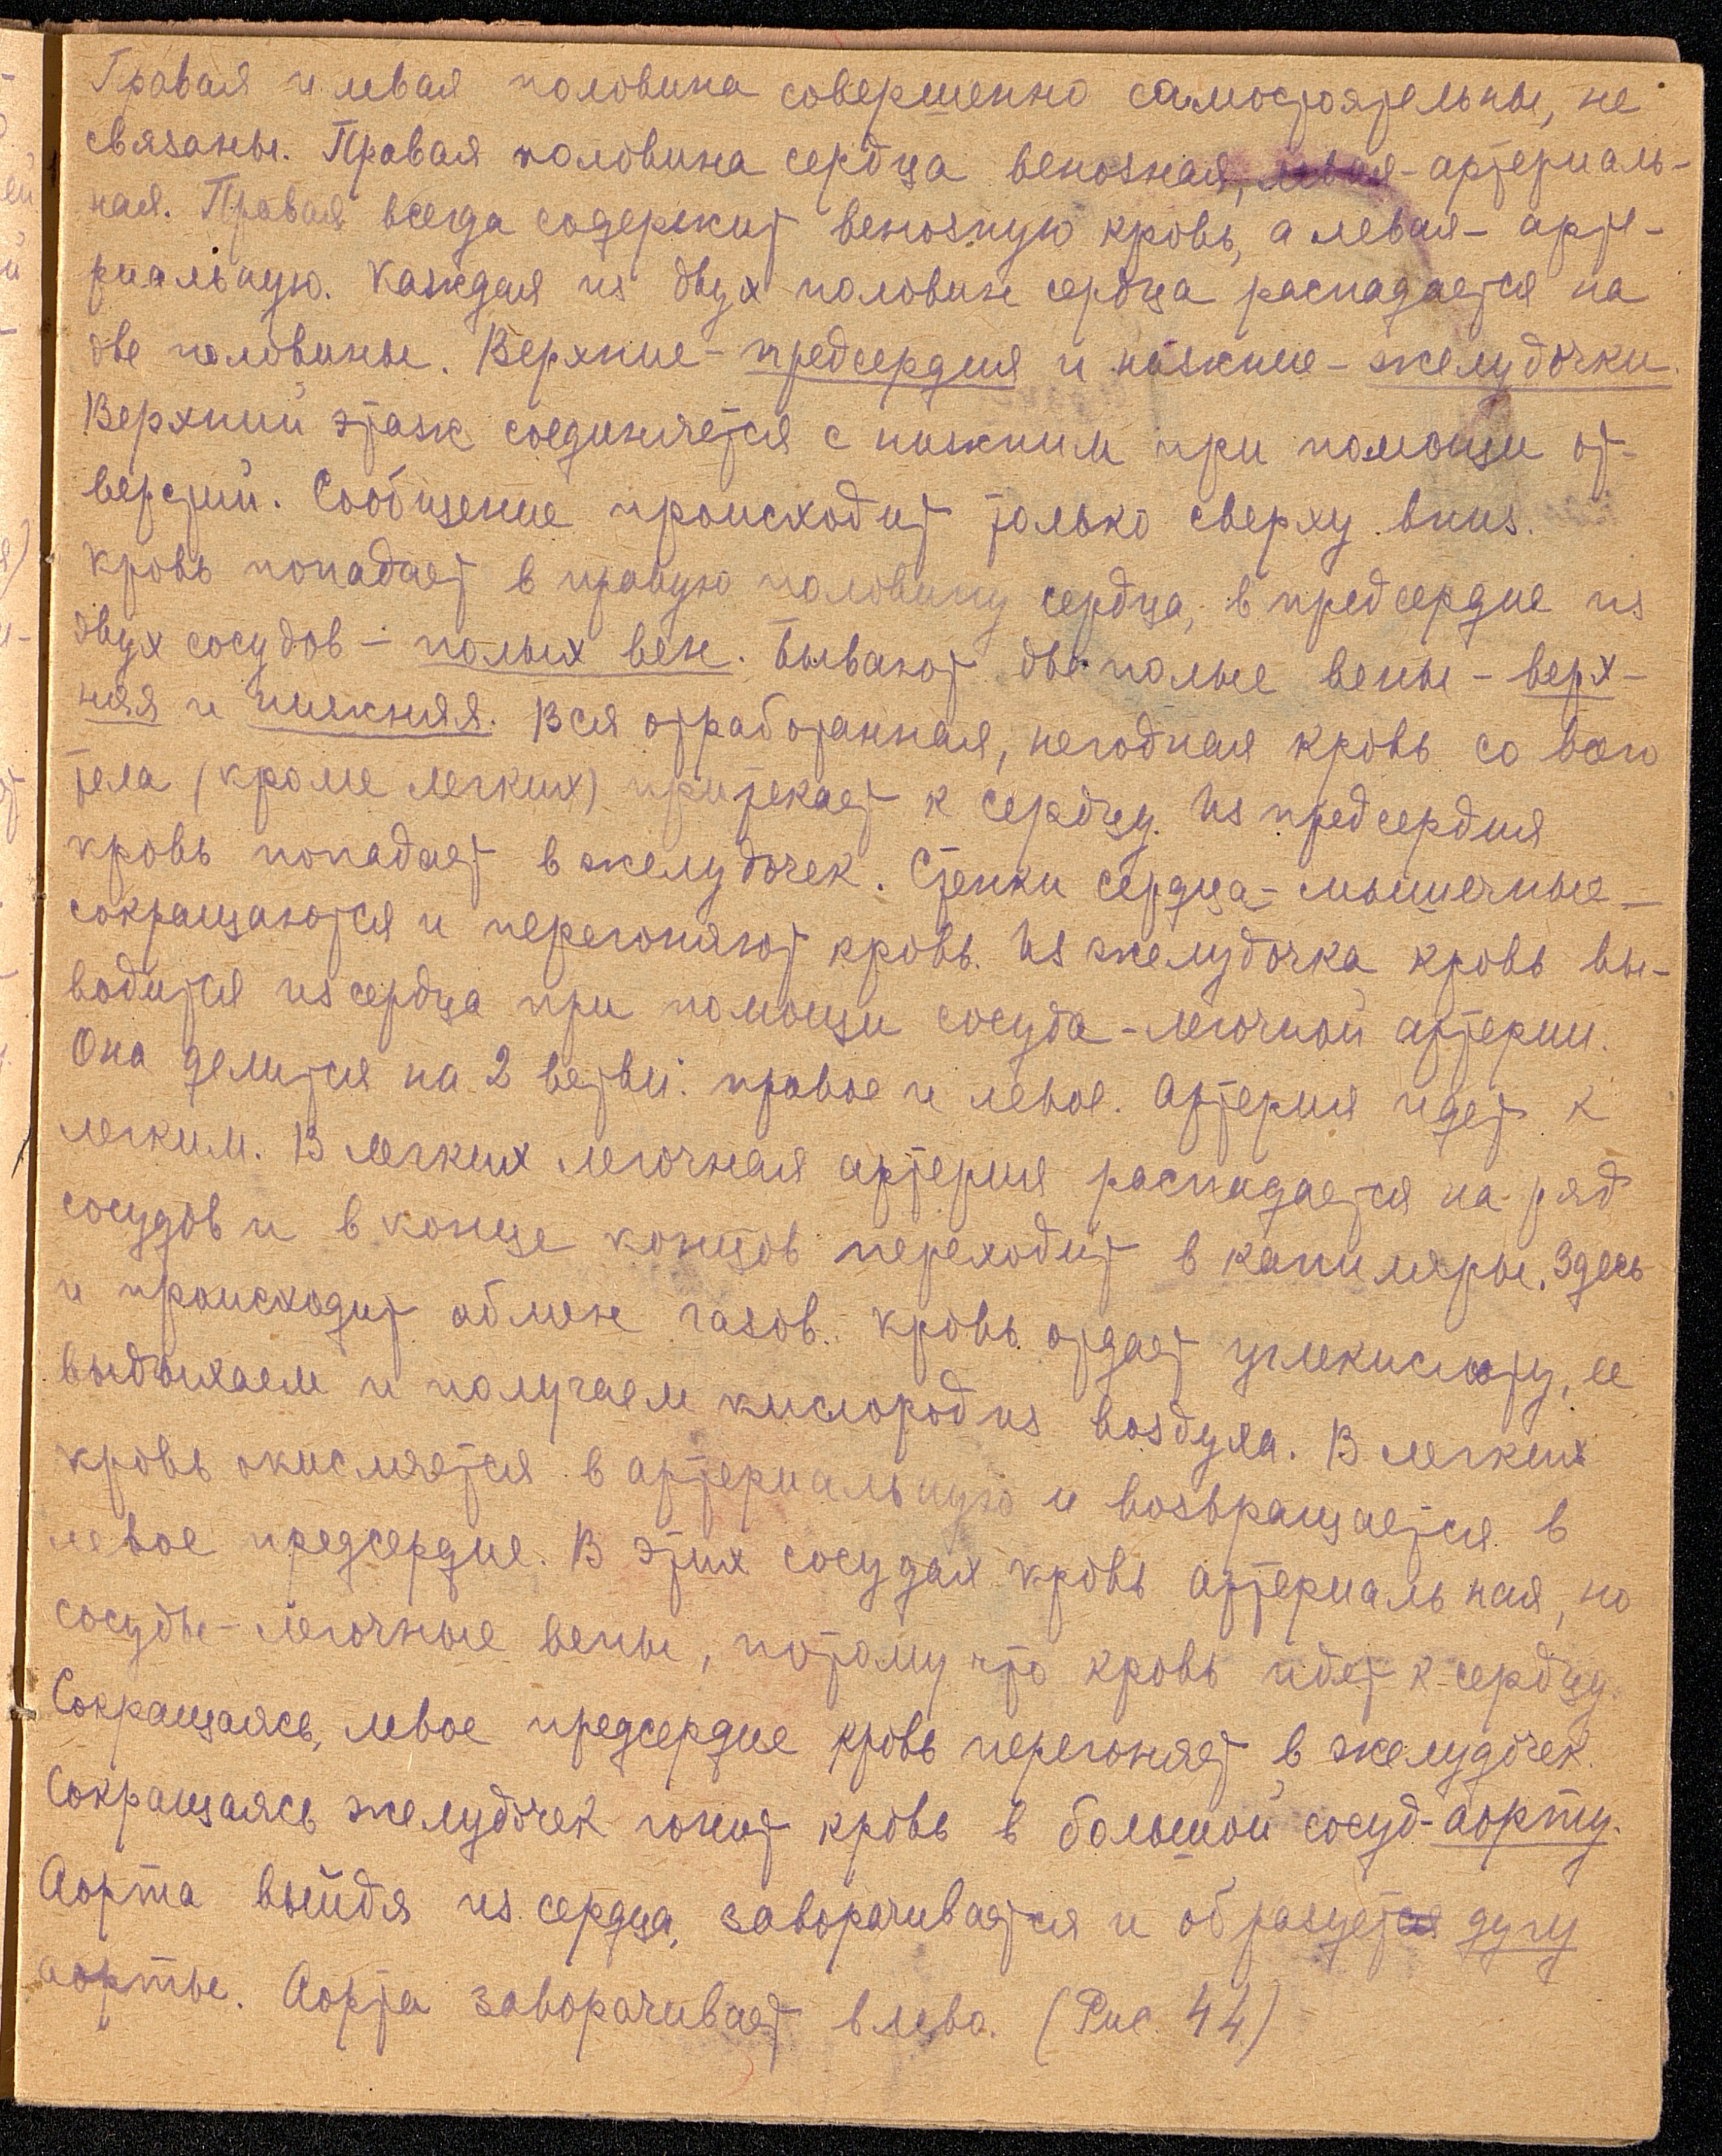 Правая и левая половина совершенно самостоятельны, не
связаны. Правая половина сердца венозная, левая - артериаль-
ная. Правая всегда содержит венозную кровь, а левая - арте-
риальную. Каждая из двух половин сердца распадается на
две половины. Верхние - предсердия и нижние - желудочки.
Верхний этаж соединяется с нижним при помощи от-
верстий. Сообщение происходит только сверху вниз.
Кровь попадает в правую половину сердца, в предсердие из
двух сосудов - полых вен. Бывают две полые вены - верх-
няя и нижняя. Вся отработанная, негодная кровь со всего
тела (кроме легких) притекает к сердцу. Из предсердия
кровь попадает в желудочек. Стенки сердца - мышечные -
сокращаются и перегоняют кровь. Из желудочка кровь вы-
водится из сердца при помощи сосуда - легочной артерии.
Она делится на 2 ветви: правое и левое. Артерия идет к
легким. В легких легочная артерия распадается на ряд
сосудов и в конце концов переходит в капиляры. Здесь
и происходит обмен газов. Кровь отдает углекислоту, ее
выдыхаем и получаем кислород из воздуха. В легких
кровь окисляется в артериальную и возвращается в
левое предсердие. В этих сосудах кровь артериальная, но
сосуды - легочные вены, потому что кровь идет к сердцу.
Сокращаясь, левое предсердие кровь перегоняет в желудочек.
Сокращаясь желудочек гонит кровь в большой сосуд - аорту.
Аорта выйдя из сердца, заворачивается и образует дугу
аорты. Аорта заворачивает влево. (Рис 44)